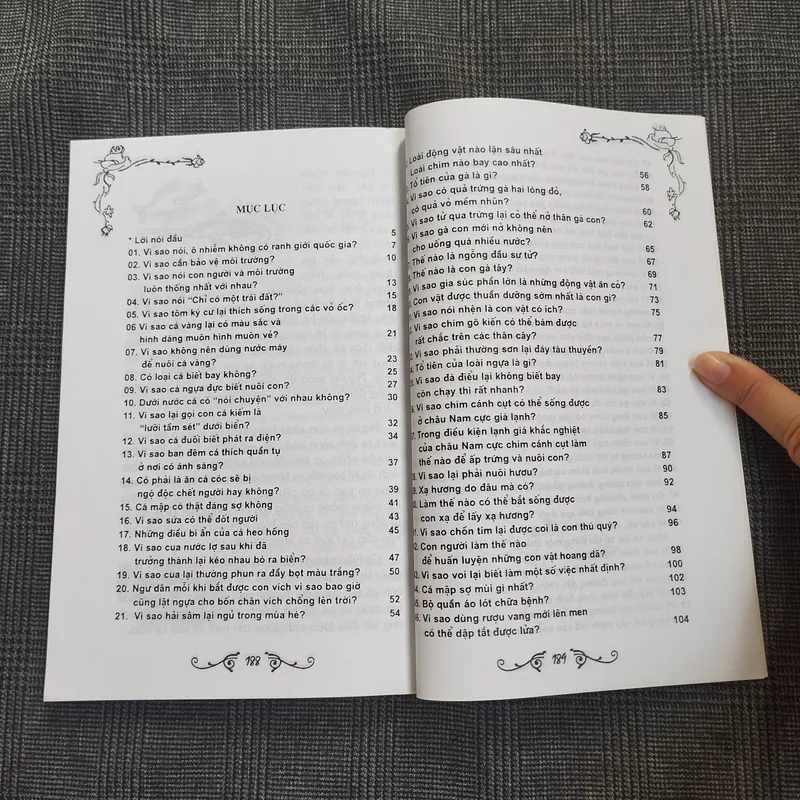 MỤC LỤC
* Lời nói đầu 5
01. Vì sao nói, ô nhiễm không có ranh giới quốc gia? 7
02. Vì sao cần bảo vệ môi trường? 10
03. Vì sao nói con người và môi trường
luôn thống nhất với nhau? 13
04. Vì sao nói "Chỉ có một trái đất?" 15
05. Vì sao tôm ký cư lại thích sống trong các vỏ ốc? 18
06 Vì sao cá vàng lại có màu sắc và
hình dáng muôn hình muôn vẻ? 21
07. Vì sao không nên dùng nước máy
để nuôi cá vàng? 23
08. Có loại cá biết bay không? 25
09. Vì sao cá ngựa đực biết nuôi con? 27
10. Dưới nước cá có "nói chuyện" với nhau không? 30
11. Vì sao lại gọi con cá kiếm là
"lưỡi tầm sét" dưới biển? 32
12. Vì sao cá đuối biết phát ra điện? 34
13. Vì sao ban đêm cá thích quần tụ
ở nơi có ánh sáng? 37
14. Có phải là ăn cá cóc sẽ bị
ngộ độc chết người hay không? 39
15. Cá mập có thật đáng sợ không 41
16. Vì sao sứa có thể đốt người 43
17. Những điều bí ẩn của cá heo hồng 45
18. Vì sao cua nước lợ sau khi đã
trưởng thành lại kéo nhau bò ra biển? 47
19. Vì sao cua lại thường phun ra đầy bọt màu trắng? 50
20. Ngư dân mỗi khi bắt được con vích vì sao bao giờ
cũng lật ngựa cho bốn chân vích chổng lên trời? 52
21. Vì sao hải sâm lại ngủ trong mùa hè? 54
188
Loài động vật nào lặn sâu nhất
Loài chim nào bay cao nhất? 56
Tổ tiên của gà là gì? 58
Vì sao có quả trứng gà hai lòng đỏ,
có quả vỏ mềm nhũn? 60
Vì sao từ quả trứng lại có thể nở thân gà con? 62
Vì sao gà con mới nở không nên
cho uống quá nhiều nước? 65
Thế nào là ngỗng đầu sư tử? 67
Thế nào là con gà tây? 69
Vì sao gia súc phần lớn là những động vật ăn cỏ? 71
Con vật được thuần dưỡng sớm nhất là con gì? 73
Vì sao nói nhện là con vật có ích? 75
Vì sao chim gõ kiến có thể bám được
rất chắc trên các thân cây? 77
Vì sao phải thường sơn lại đáy tàu thuyền? 79
Tổ tiên của loài ngựa là gì? 81
Vì sao đà điểu lại không biết bay
còn chạy thì rất nhanh? 83
Vì sao chim cánh cụt có thể sống được
ở châu Nam cực giá lạnh? 85
Trong điều kiện lạnh giá khắc nghiệt
của châu Nam cực chim cánh cụt làm
thế nào để ấp trứng và nuôi con? 87
Vì sao lại phải nuôi hươu? 90
Xạ hương do đâu mà có? 92
Làm thế nào có thể bắt sống được
con xạ để lấy xạ hương? 94
Vì sao chốn tìm lại được coi là con thú quý? 96
Con người làm thế nào
để huấn luyện những con vật hoang dã? 98
Vì sao voi lại biết làm một số việc nhất định? 100
Cá mập sợ mùi gì nhất? 102
Bộ quần áo lót chữa bệnh? 103
Vì sao dùng rượu vang mới lên men
có thể dập tắt được lửa? 104
189